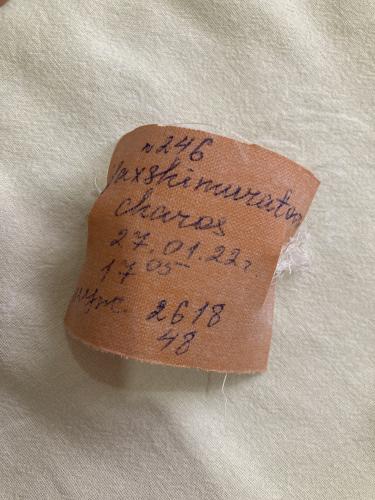 n 246
Yaxshimuratova
Charos
27.01.22г.
17 05
муж. 2618
48